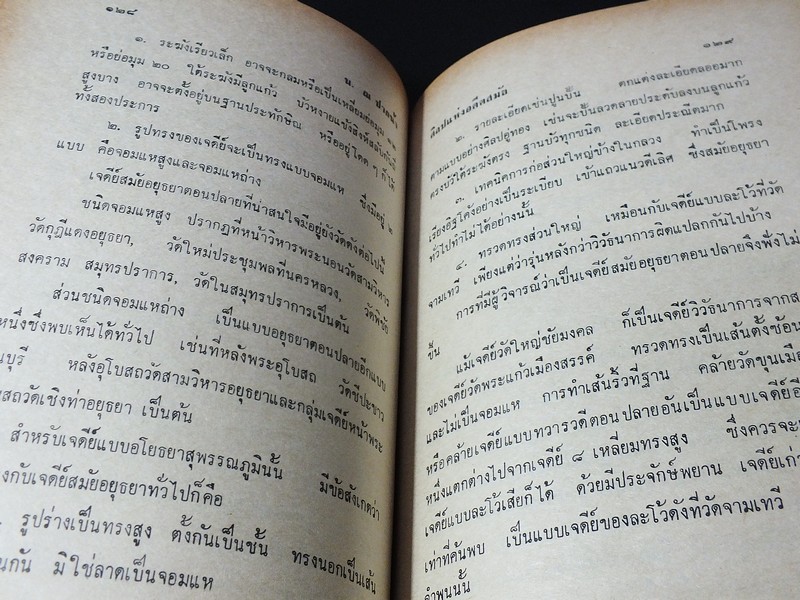 ๑๒๔
น. ณ ปากน้ำ
๑. ระฆังเรียวเล็ก อาจจะกลมหรือเป็นเหลี่ยมย่อมุม ๑๒
หรือย่อมุม ๒๐ ใต้ระฆังมีลูกแก้ว บัวหงายแข้งสิงห์สลับกันขึ้น
สูงบาง อาจจะตั้งอยู่บนฐานประทักษิณ หรืออยู่โดด ๆ ก็ได้
ทั้งสองประการ
๒. รูปทรงของเจดีย์จะเป็นทรงแบบจอมแห ซึ่งมีอยู่ ๒
แบบ คือจอมแหสูงและจอมแหถ่าง
เจดีย์สมัยอยุธยาตอนปลายที่น่าสนใจมีอยู่ยังวัดดังต่อไปนี้
ชนิดจอมแหสูง ปรากฏที่หน้าวิหารพระนอนวัดสามวิหาร
วัดกุฎีแดงอยุธยา, วัดใหม่ประชุมพลที่นครหลวง, วัดพิชัย
สงคราม สมุทรปราการ, วัดในสมุทรปราการเป็นต้น
ส่วนชนิดจอมแหถ่าง เป็นแบบอยุธยาตอนปลายอีกแบบ
หนึ่งซึ่งพบเห็นได้ทั่วไป เช่นที่หลังพระอุโบสถ วัดชีปะขาว
บุรี หลังอุโบสถวัดสามวิหารอยุธยาและกลุ่มเจดีย์หน้าพระ
สถวัดเชิงท่าอยุธยา เป็นต้น
สำหรับเจดีย์แบบอโยธยาสุพรรณภูมินั้น มีข้อสังเกตว่า
งกับเจดีย์สมัยอยุธยาทั่วไปก็คือ
รูปร่างเป็นทรงสูง ตั้งกันเป็นชั้น ทรงนอกเป็นเส้น
นกัน มิใช่ลาดเป็นจอมแห
๑๒๙
ศิลปะแห่งอดีตสมัย
๒. รายละเอียดเช่นปูนปั้น ตกแต่งละเอียดลออมาก
ตามแบบอย่างศิลปอู่ทอง เช่นจะปั้นลวดลายประดับลงบนลูกแก้ว
ตรงบัวใต้ระฆังตรง ฐานบัวทุกขนิด ละเอียดประณีตมาก
๓. เทคนิคการก่อส่วนใหญ่ข้างในกลวง ทำเป็นโพรง
เรียงอิฐโค้งอย่างเป็นระเบียบ เข้าแถวแนวดีเลิศ ซึ่งสมัยอยุธยา
ทั่วไปทำไม่ได้อย่างนั้น
๔. ทรวดทรงส่วนใหญ่ เหมือนกับเจดีย์แบบละโว้ที่วัด
จามเทวี เพียงแต่ว่ารุ่นหลังกว่าวิวัธนาการผิดแปลกกันไปบ้าง
การที่มีผู้วิจารณ์ว่าเป็นเจดีย์สมัยอยุธยาตอนปลายจึงฟังไม่
ขึ้น
แม้เจดีย์วัดใหญ่ชัยมงคล ก็เป็นเจดีย์วิวัธนาการจาก
ของเจดีย์วัดพระแก้วเมืองสรรค์ ทรวดทรงเป็นเส้นตั้งซ้อน
และไม่เป็นจอมแห การทำเส้นริ้วที่ฐาน คล้ายวัดขุนเมือ
หรือคล้ายเจดีย์แบบทวารวดีตอนปลายอันเป็นแบบเจดีย์อี
หนึ่งแตกต่างไปจากเจดีย์ ๘ เหลี่ยมทรงสูง ซึ่งควรจะ
เจดีย์แบบละโว้เสียก็ได้ ด้วยมีประจักษ์พยาน เจดีย์เก่า
เท่าที่ค้นพบ เป็นแบบเจดีย์ของละโว้ดังที่วัดจามเทวี
ลำพูนนั้น